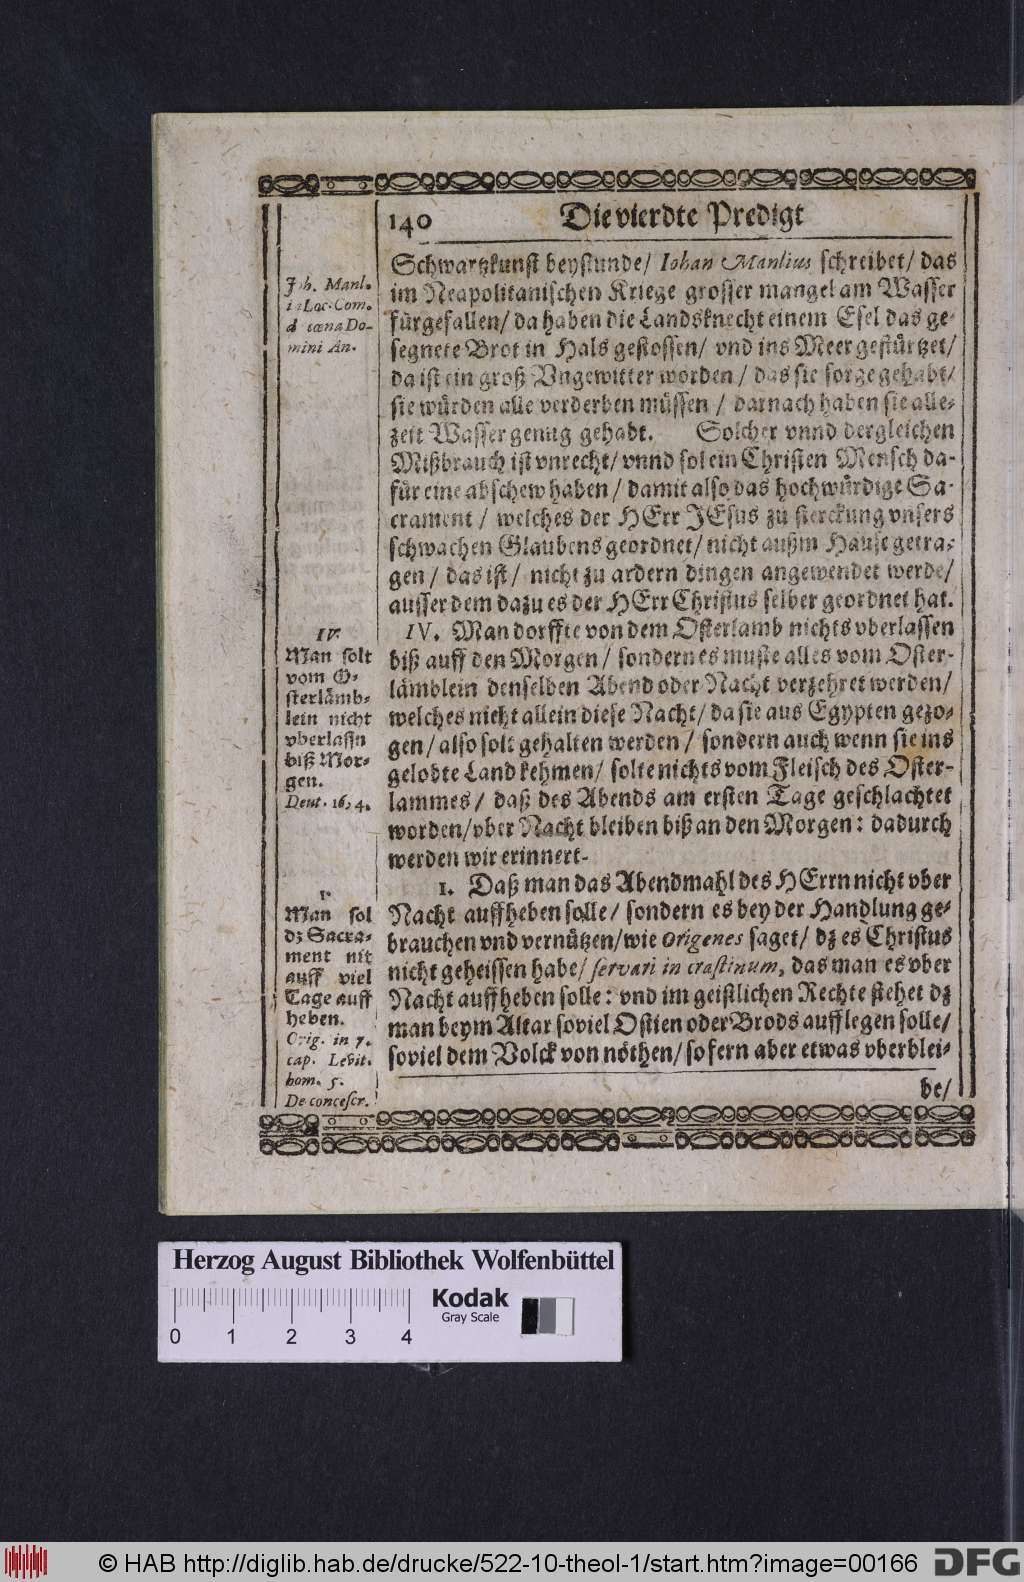 140 Die vierdte Predigt
Schwartzkunst beystunde/ Iohan Manlius schreibet/ das
im Neapolitanischen Kriege grosser mangel am Wasser
fürgefallen/ da haben die Landsknecht einem Esel das ge-
segnete Brot in Hals gestossen/ vnd ins Meer gestürtzet/
da ist ein groß Vngewitter worden/ das sie sorge gehabt/
sie würden alle verderben müssen/ darnach haben sie alle-
zeit Wasser genug gehabt. Solcher vnnd dergleichen
Mißbrauch ist vnrecht/ vnnd sol ein Christen Mensch da-
für eine abschew haben/ damit also das hochwürdige Sa-
crament/ welches der HErr JEsus zu sterckung vnsers
schwachen Glaubens geordnet/ nicht außm Hause getra-
gen/ das ist/ nicht zu andern dingen angewendet werde/
ausser dem dazu es der HErr Christus selber geordnet hat.
IV. Man dorffte von dem Osterlamb nichts vberlassen
biß auff den Morgen/ sondern es muste alles vom Oster-
lämblein denselben Abend oder Nacht verzehret werden/
welches nicht allein diese Nacht/ da sie aus Egypten gezo-
gen/ also solt gehalten werden/ sondern auch wenn sie ins
gelobte Land kehmen/ solte nichts vom Fleisch des Oster-
lammes/ daß des Abends am ersten Tage geschlachtet
worden/ vber Nacht bleiben biß an den Morgen: dadurch
werden wir erinnert.
1. Daß man das Abendmahl des HErrn nicht vber
Nacht auffheben solle/ sondern es bey der Handlung ge-
brauchen vnd vernützen/ wie Origenes saget/ dz es Christus
nicht geheissen habe/ servari in crastinum, das man es vber
Nacht auffheben solle: vnd im geistlichen Rechte stehet dz
man beym Altar soviel Ostien oder Brods aufflegen solle/
soviel dem Volck von nöthen/ so fern aber etwas vberblei-
be/
Joh. Manl.
in Loc. Com.
d cœna Do-
mini An.
IV.
Man solt
vom O-
sterlämb-
lein nicht
vberlassn
biß Mor-
gen.
Deut. 16, 4.
1.
Man sol
dz Sacra-
ment nit
auff viel
Tage auff
heben.
Orig. in 7.
cap. Levit.
hom. 5.
De concescr.
Herzog August Bibliothek Wolfenbüttel
Kodak
Gray Scale
0 1 2 3 4
© HAB http://diglib.hab.de/drucke/522-10-theol-1/start.htm?image=00166
DFG